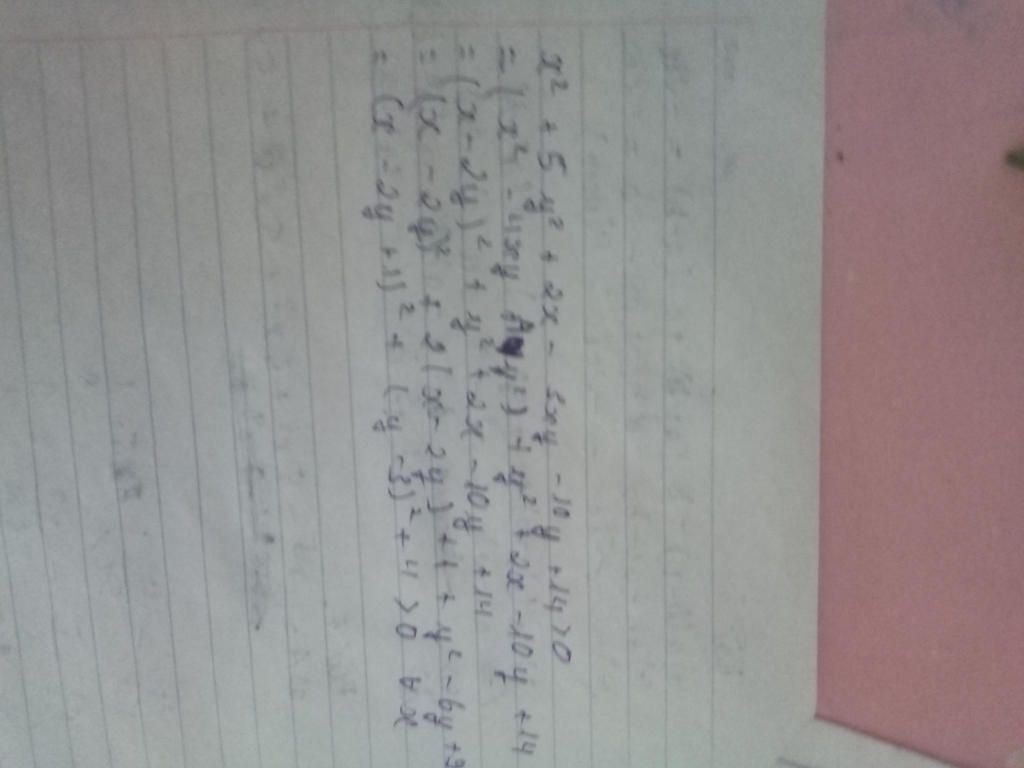 x² + 5y² + 2x - 4xy - 10y + 14 > 0
= (x² - 4xy + 4y²) + y² + 2x - 10y + 14
= (x - 2y)² + y² + 2x - 10y + 14
= (x - 2y)² + 2(x - 2y) + 1 + y² - 6y + 9
= (x - 2y + 1)² + (y - 3)² + 4 > 0 ∀ x